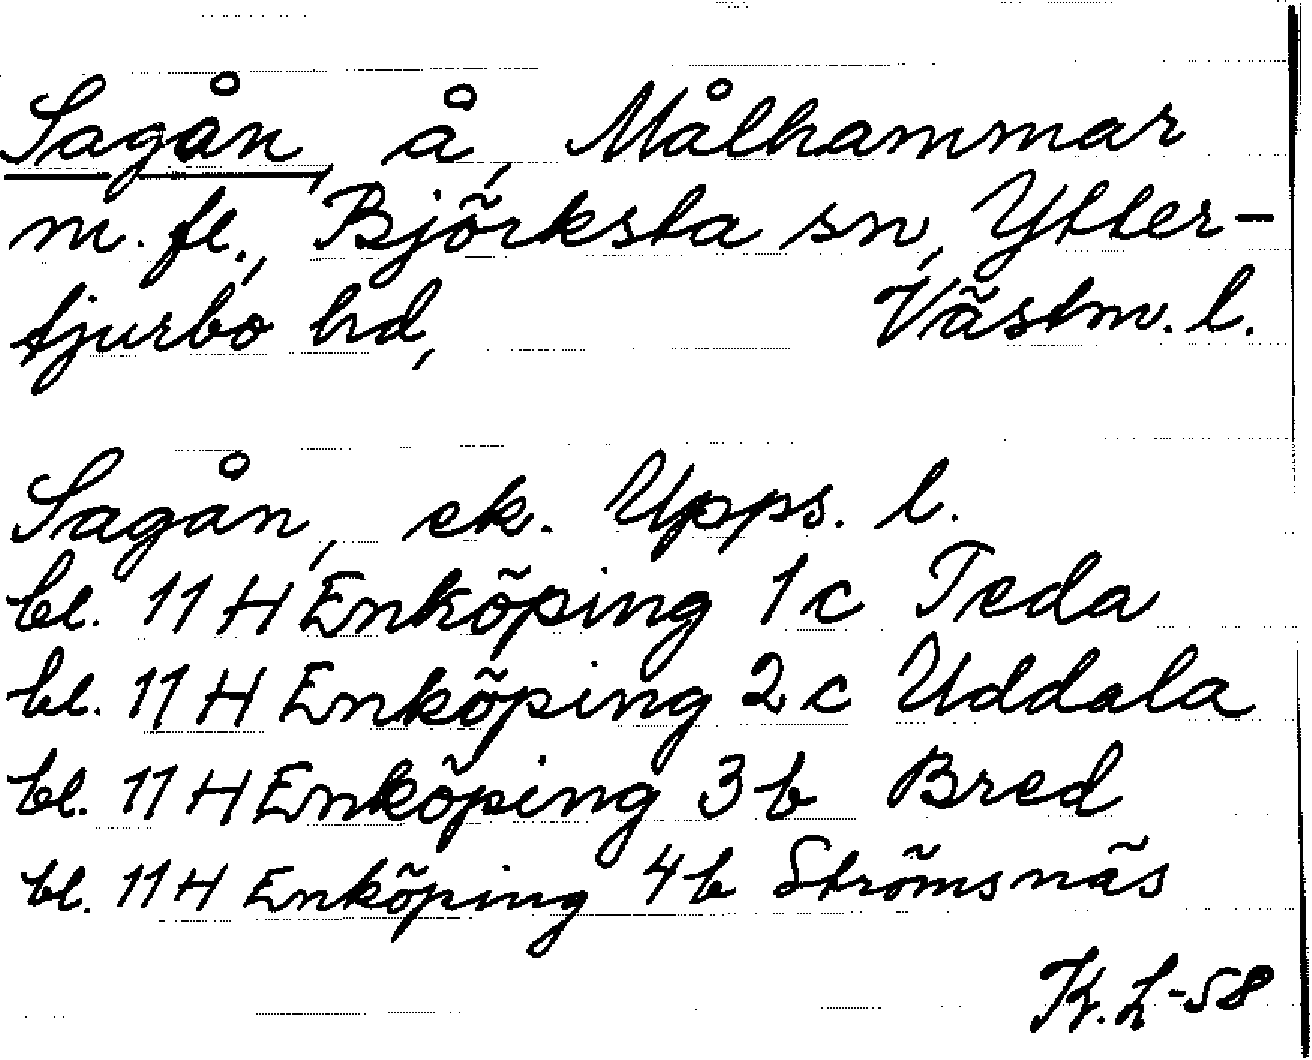 Sagån, å, Målhammar
m. fl., Björksta sn, Ytter-
tjurbo hd, Västm. l.
Sagån, ek. Upps. l.
bl. 11 H Enköping 1 c Teda
bl. 11 H Enköping 2 c Uddala
bl. 11 H Enköping 3 b Bred
bl. 11 H Enköping 4 b Strömsnäs
K. L -58